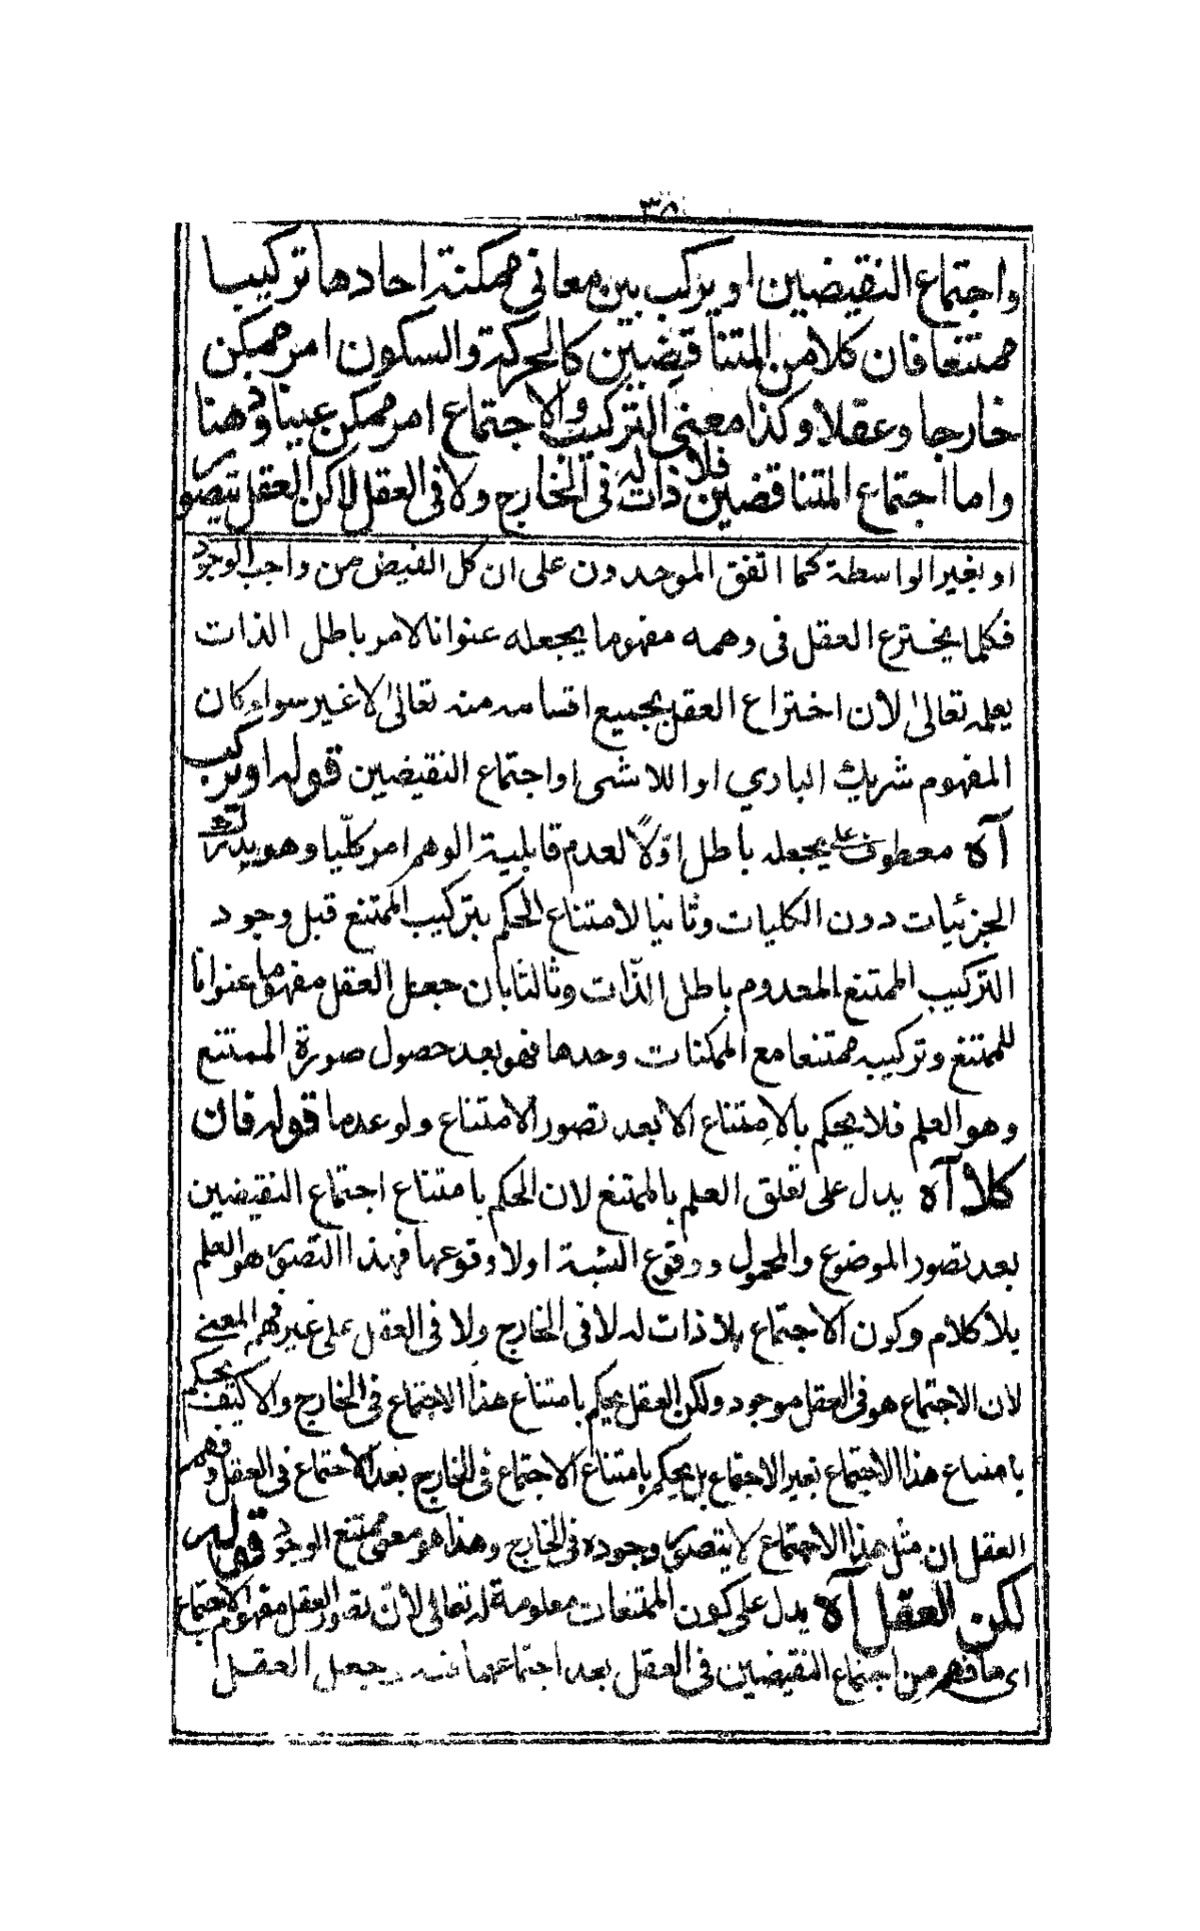 ٣٥
واجتماع النقيضين او يركب بين معاني ممكنة احادها تركيبا
ممتنعا فان كلا من المتناقضين كالحركة والسكون امر ممكن
خارجا وعقلا وكذا معنى التركيب والاجتماع امر ممكن عينا وذهنا
واما اجتماع المتناقضين فلا ذات له في الخارج ولا في العقل لاكن العقل يتصور
او بغير الواسطة كما اتفق الموحدون على ان كل الفيض من واجب الوجود
فكلما يخترع العقل في وهمه مفهوما يجعله عنوانا لامر باطل الذات
يعلمه تعالى لان اختراع العقل بجميع اقسامه منه تعالى لا غير سواء كان
المفهوم شريك الباري او اللاشى او اجتماع النقيضين قوله او يركب
آه معطوف على يجعله باطل اوّلاً لعدم قابلية الوهم امر كلّيا وهو يدرك
الجزئيات دون الكليات وثانيا لامتناع الحكم بتركيب الممتنع قبل وجود
التركيب الممتنع المعدوم باطل الذّات وثالثا بان جعل العقل مفهوما عنوانا
للممتنع وتركيبه ممتنعا مع الممكنات وحدها فهو بعد حصول صورة الممتنع
وهو العلم فلا يحكم بالامتناع الا بعد تصور الامتناع ولو عدما قوله فان
كلا آه يدل على تعلق العلم بالممتنع لان الحكم بامتناع اجتماع النقيضين
بعد تصور الموضوع والمحمول ووقوع النسبة اولا وقوعها فهذا التصور هو العلم
بلا كلام وكون الاجتماع بلا ذات له لا في الخارج ولا في العقل على غير فهم المعنى
لان الاجتماع هو في العقل موجود ولكن العقل يحكم بامتناع هذا الاجتماع في الخارج والا كيف يحكم
بامتناع هذا الاجتماع بغير الاجتماع بل يحكم بامتناع الاجتماع في الخارج بعد الاجتماع في العقل وفهم
العقل ان مثل هذا الاجتماع لا يتصور وجوده في الخارج وهذا هو معنى ممتنع الوجود قوله
لكن العقل آه يدل على كون الممتنعات معلومة له تعالى لان تصور العقل مفهوم الاجتماع
اى ما فهم من اجتماع النقيضين في العقل بعد اجتماعهما فيه وجعل العقل